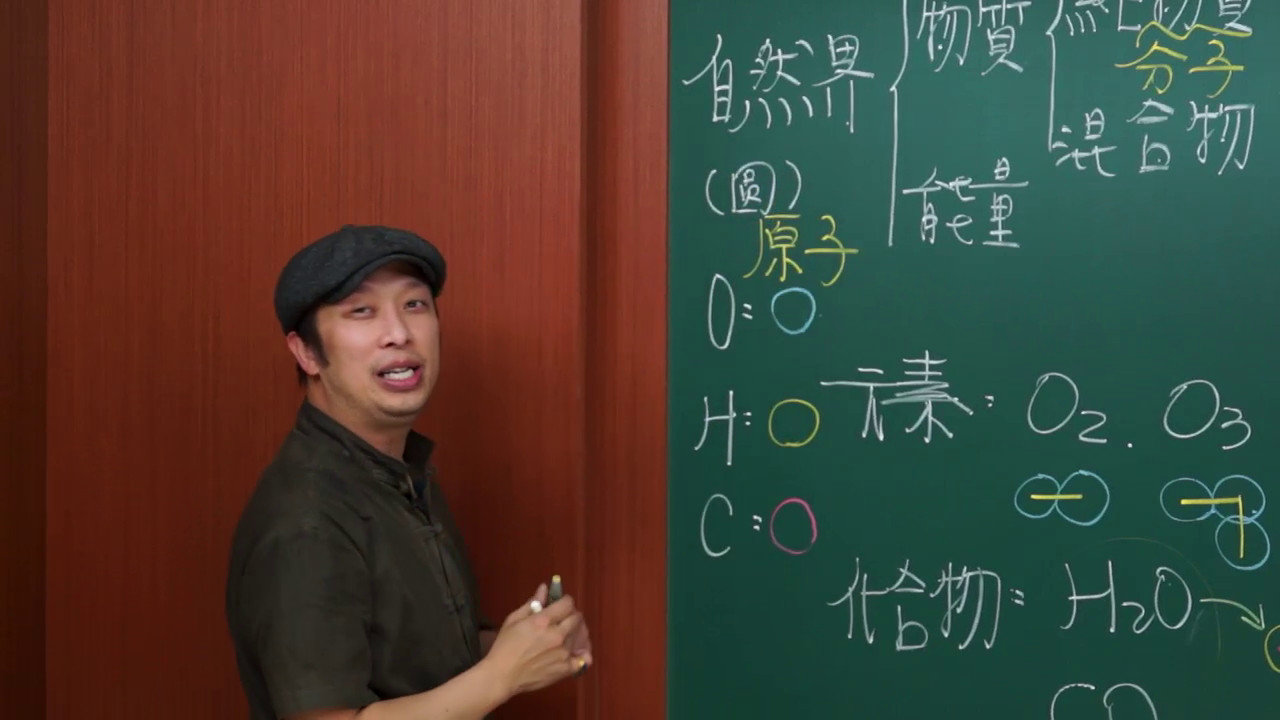 自然界 物質 純物質
分子
混合物
(圓) 能量
原子
O:
H: 元素: O2. O3
C:
化合物: H2O →
CO